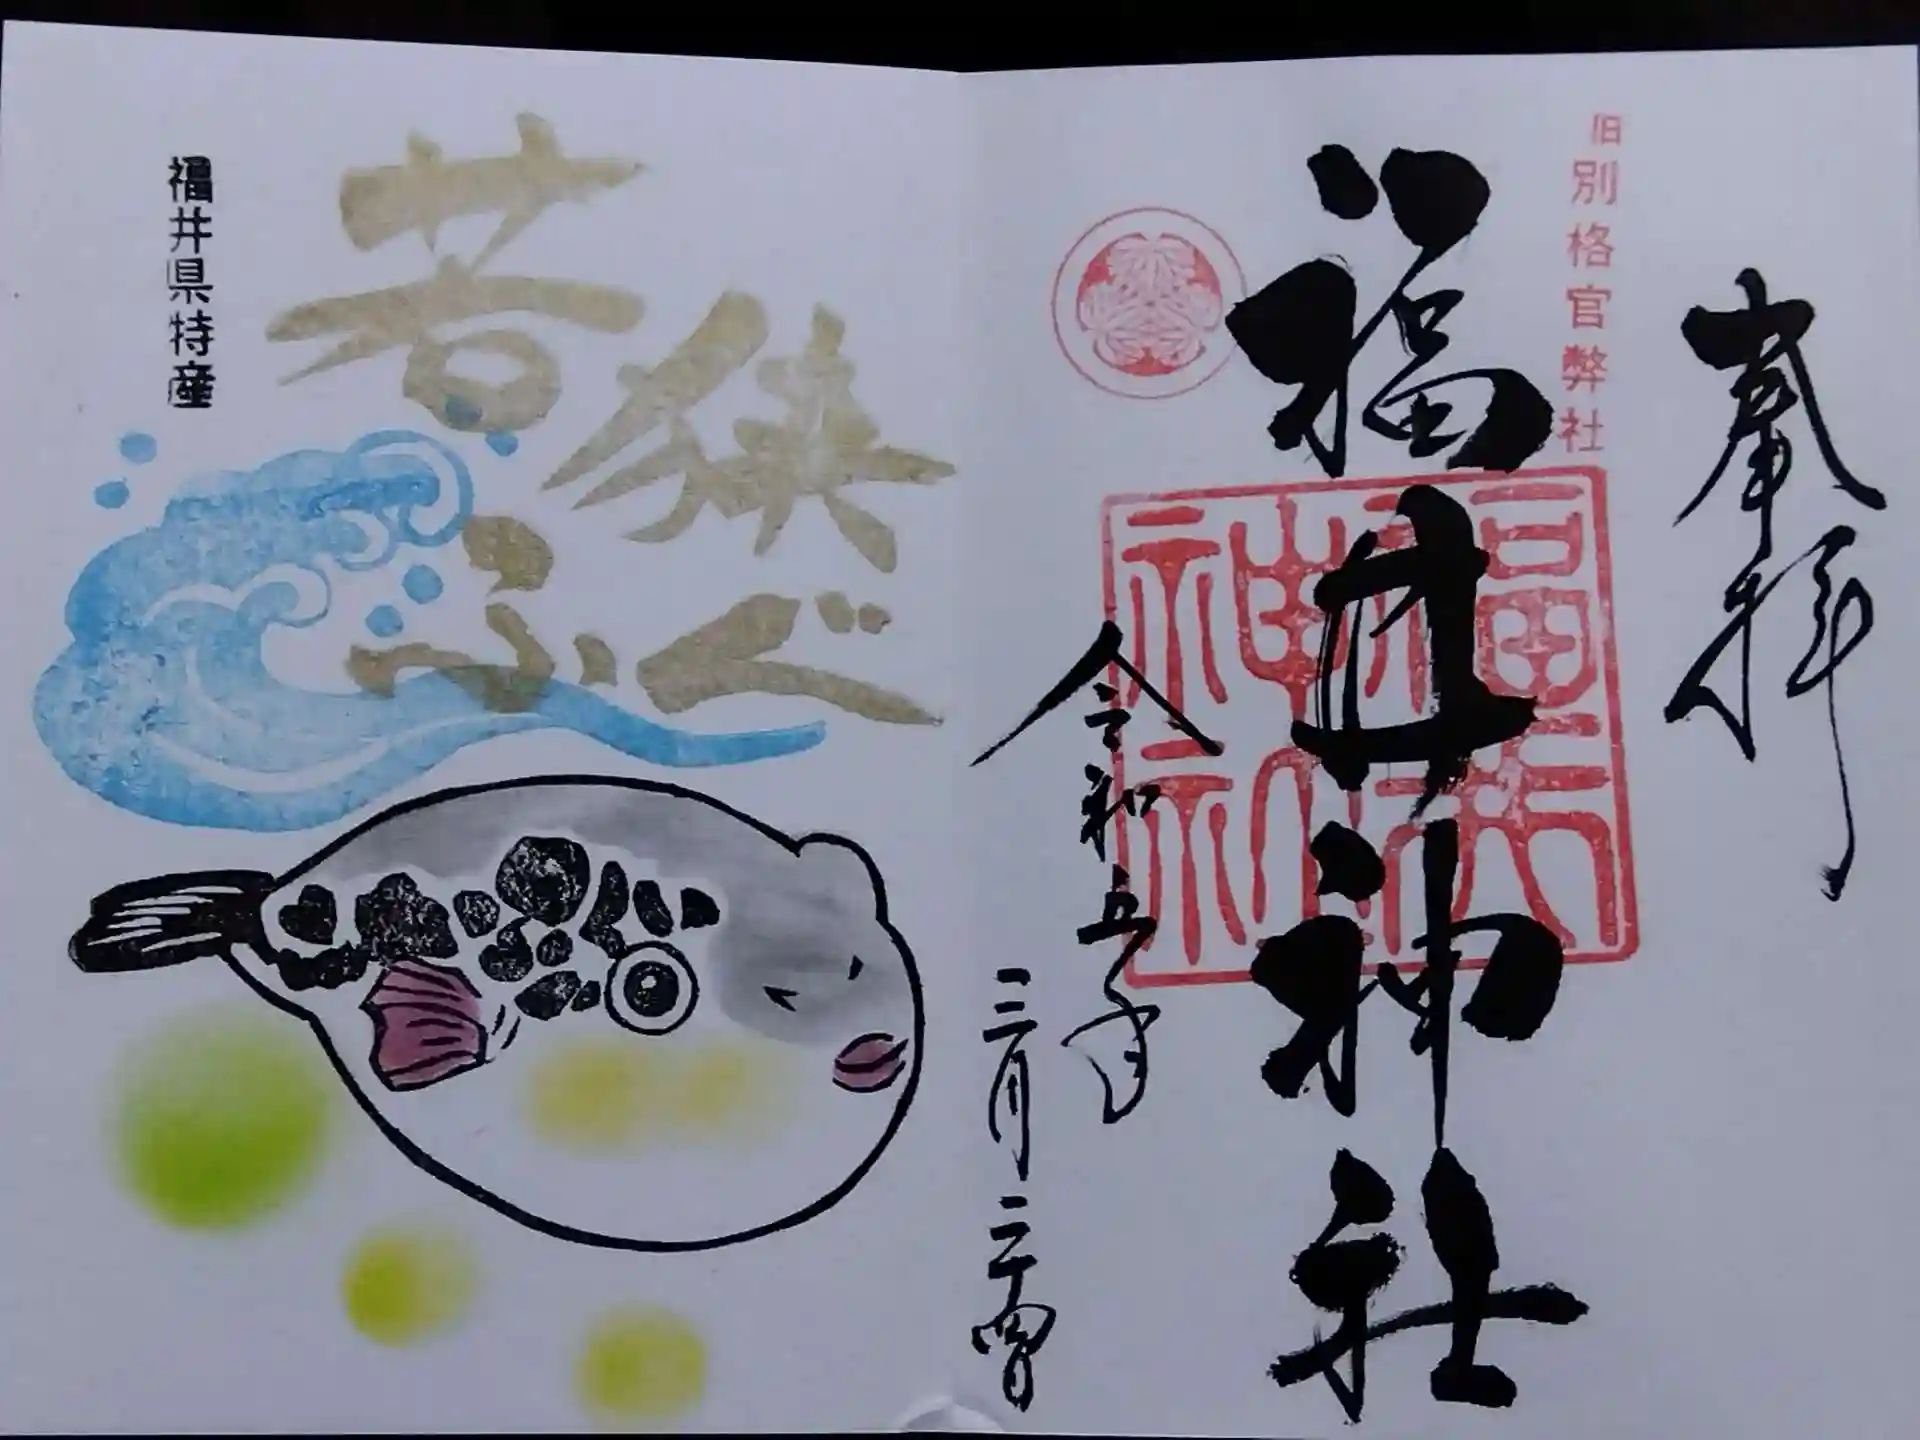 奉拝
旧別格官弊社
福井神社
福井神社
令和五年
三月二十四日
若狭
ふぐ
福井県特産